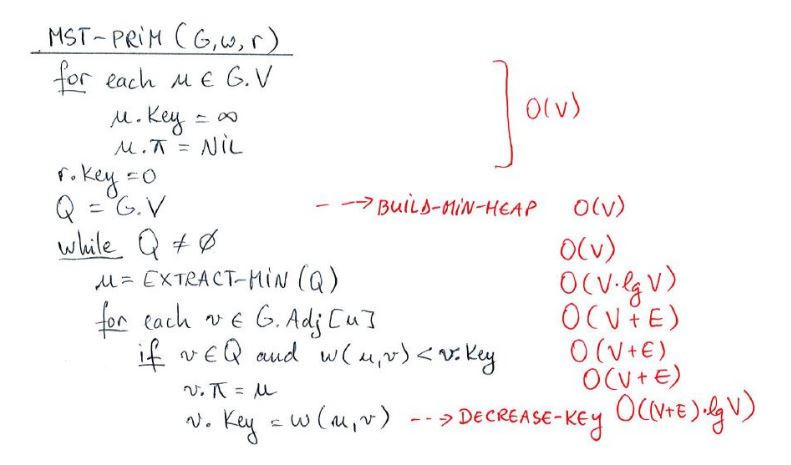 MST-PRIM (G,w,r)
for each u ∈ G.V
u.Key = ∞
u.π = NIL
O(V)
r.Key = 0
Q = G.V --→ BUILD-MIN-HEAP O(V)
while Q ≠ ∅ O(V)
u = EXTRACT-MIN (Q) O(V·lg V)
for each v ∈ G.Adj[u] O(V+E)
if v ∈ Q and w(u,v) < v.Key O(V+E)
v.π = u O(V+E)
v.Key = w(u,v) --→ DECREASE-KEY O((V+E)·lg V)